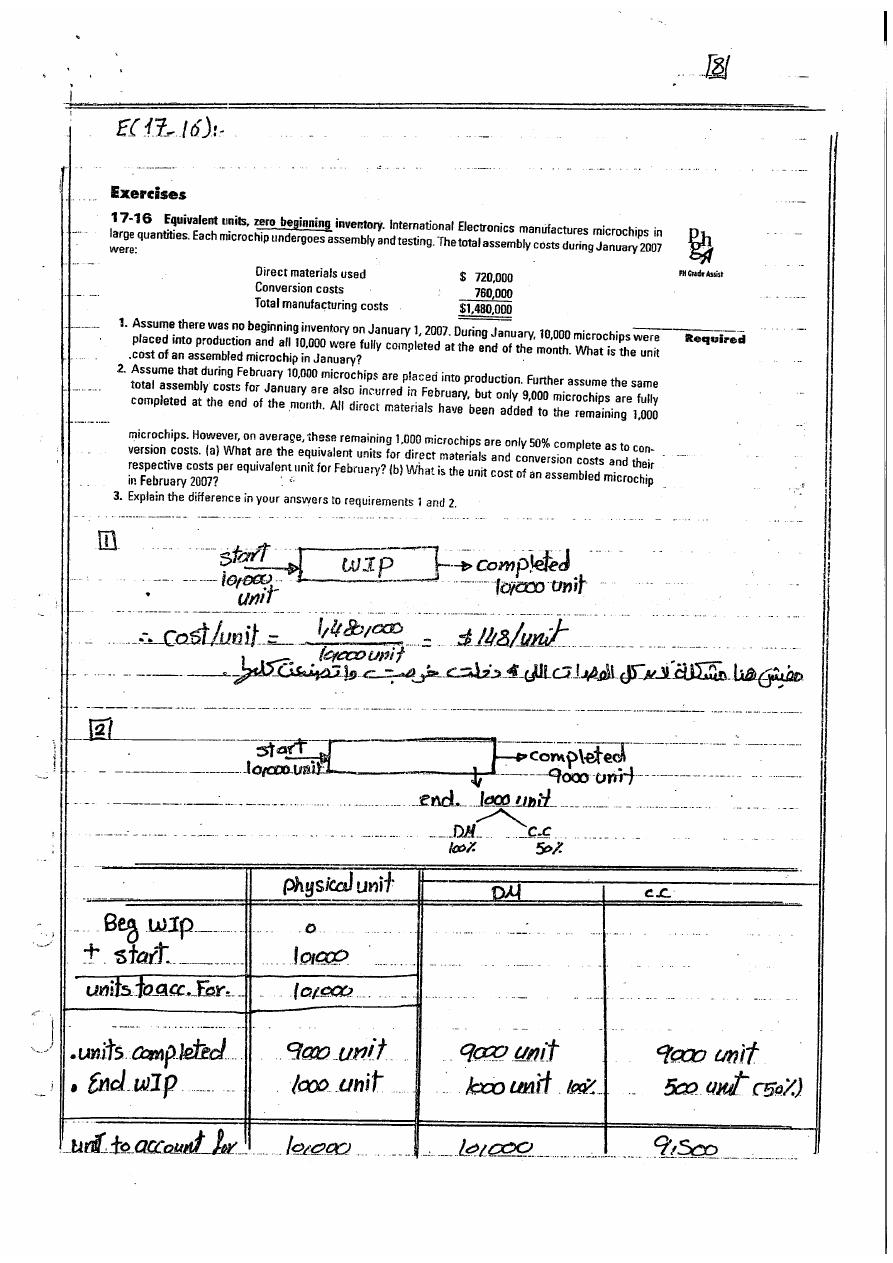 [8]
E(17-16):-
Exercises
17-16 Equivalent units, zero beginning inventory. International Electronics manufactures microchips in
large quantities. Each microchip undergoes assembly and testing. The total assembly costs during January 2007
were:
Ph
GA
PH Grade Assist
Direct materials used $ 720,000
Conversion costs 760,000
Total manufacturing costs $1,480,000
Required
1. Assume there was no beginning inventory on January 1, 2007. During January, 10,000 microchips were
placed into production and all 10,000 were fully completed at the end of the month. What is the unit
.cost of an assembled microchip in January?
2. Assume that during February 10,000 microchips are placed into production. Further assume the same
total assembly costs for January are also incurred in February, but only 9,000 microchips are fully
completed at the end of the month. All direct materials have been added to the remaining 1,000
microchips. However, on average, these remaining 1,000 microchips are only 50% complete as to con-
version costs. (a) What are the equivalent units for direct materials and conversion costs and their
respective costs per equivalent unit for February? (b) What is the unit cost of an assembled microchip
in February 2007?
3. Explain the difference in your answers to requirements 1 and 2.
[1]
start 10,000 unit WIP completed 10,000 unit
∴ cost/unit = 1,480,000 / 10,000 unit = $148/unit
مفيش هنا مشكلة لأن كل الوحدات اللى دخلت خرجت واتصنعت كلها.
[2]
start 10,000 unit completed 9000 unit
end. 1000 unit
DM C.C
100% 50%
physical unit DM C.C
Beg WIP 0
+ start. 10,000
units to acc. For. 10,000
.units completed 9000 unit 9000 unit 9000 unit
. End WIP 1000 unit 1000 unit 100% 500 unit (50%)
unit to account for 10,000 10,000 9,500